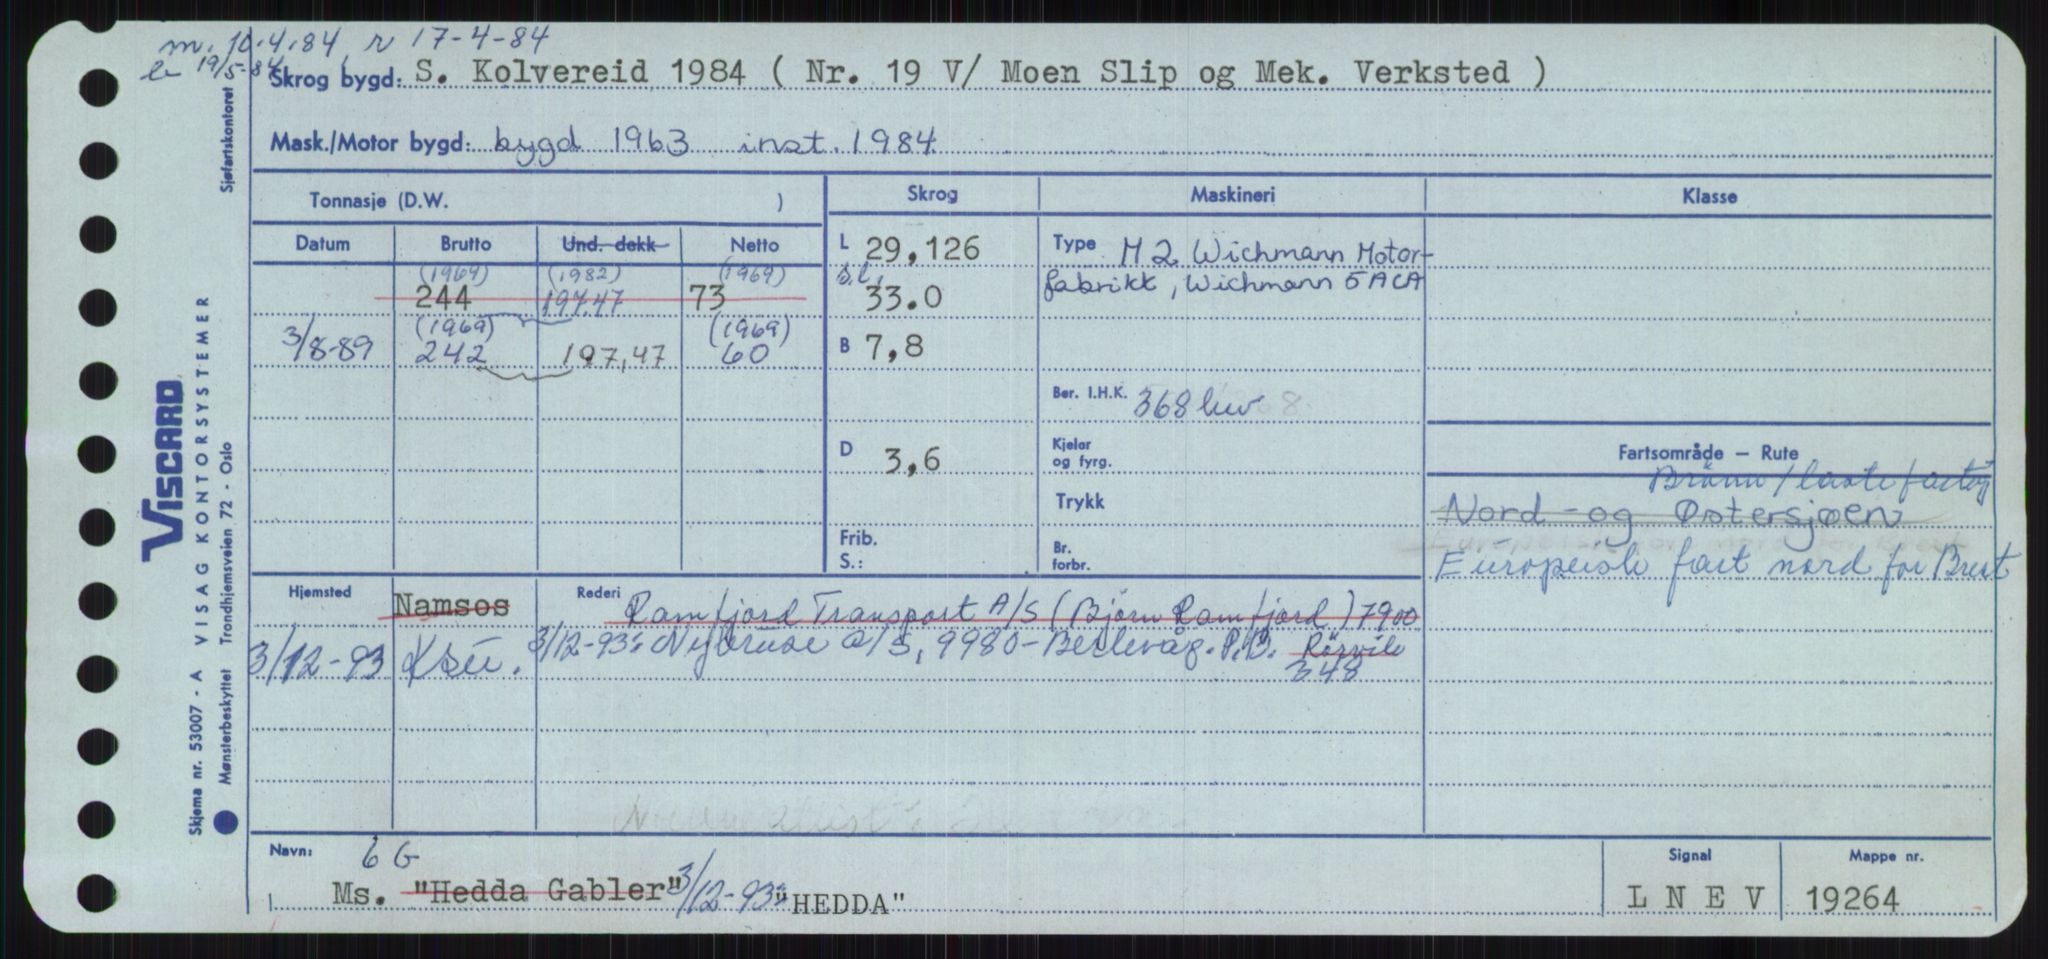 m. 10.4.84, r 17-4-84
le 19/5-84
Skrog bygd: S. Kolvereid 1984 ( Nr. 19 V/ Moen Slip og Mek. Verksted )
Mask./Motor bygd: bygd 1963 inst. 1984
Tonnasje (D.W. )
Skrog
Maskineri
Klasse
Datum Brutto Und. dekk Netto
(1969) (1982) (1969)
244 197.47 73
(1969) (1969)
3/8-89 242 197,47 60
L 29,126
s.l. 33.0
B 7,8
D 3,6
Frib.
S.:
Type M 2 Wichmann Motor-
fabrikk, Wichmann 5 ACA
Ber. I.H.K. 368 kw
Kjelar
og fyrg.
Trykk
Br.
forbr.
Fartsområde — Rute
Brönn/lastefartöy
Nord- og Østersjøen
Europeisk fart nord for Brest
Hjemsted Namsos
Rederi Ramfjord Transport A/S (Björn Ramfjord) 7900
Rörvik
3/12-93 Ksu.
3/12-93: Nybruse a/s, 9980-Berlevåg. P.B.
348
Navn: 6 G
Ms. "Hedda Gabler" 3/12-93: "HEDDA"
Signal
L N E V
Mappe nr.
19264
VISCARD
VISAG KONTORSYSTEMER
Skjema nr. 53007 - A
Mønsterbeskyttet Trondhjemsveien 72 - Oslo
Sjøfartskontoret